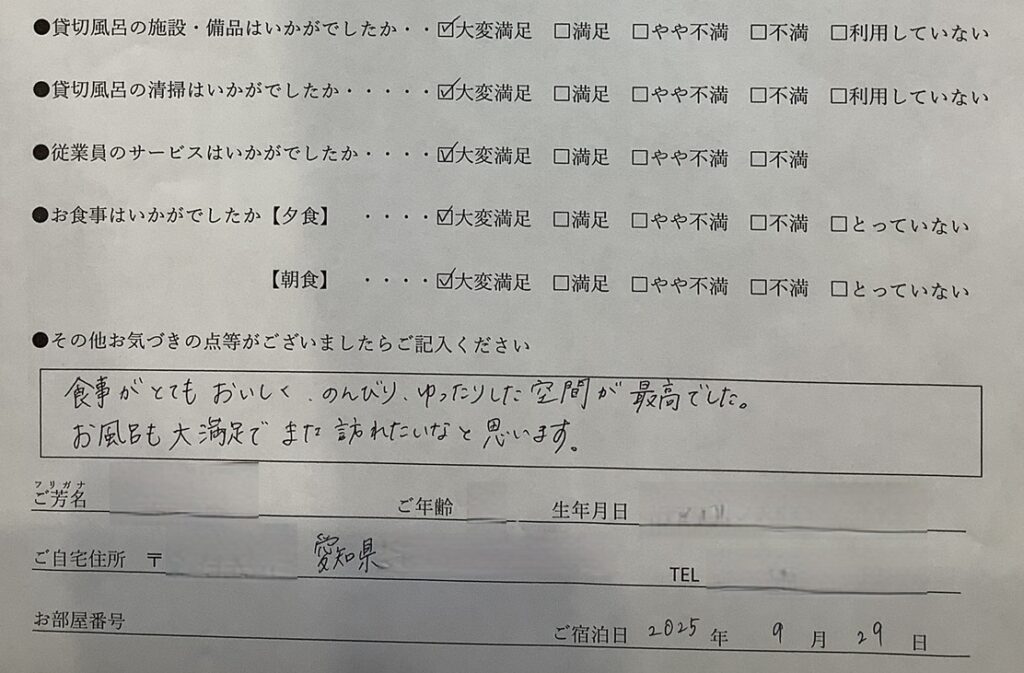 ●貸切風呂の施設・備品はいかがでしたか・・☑大変満足 □満足 □やや不満 □不満 □利用していない
●貸切風呂の清掃はいかがでしたか・・・・・☑大変満足 □満足 □やや不満 □不満 □利用していない
●従業員のサービスはいかがでしたか・・・・☑大変満足 □満足 □やや不満 □不満
●お食事はいかがでしたか【夕食】 ・・・・☑大変満足 □満足 □やや不満 □不満 □とっていない
【朝食】 ・・・・☑大変満足 □満足 □やや不満 □不満 □とっていない
●その他お気づきの点等がございましたらご記入ください
食事がとてもおいしく、のんびり、ゆったりした空間が最高でした。
お風呂も大満足でまた訪れたいなと思います。
フリガナ
ご芳名 ご年齢 生年月日
ご自宅住所 〒 愛知県 TEL
お部屋番号 ご宿泊日 2025年 9月 29日